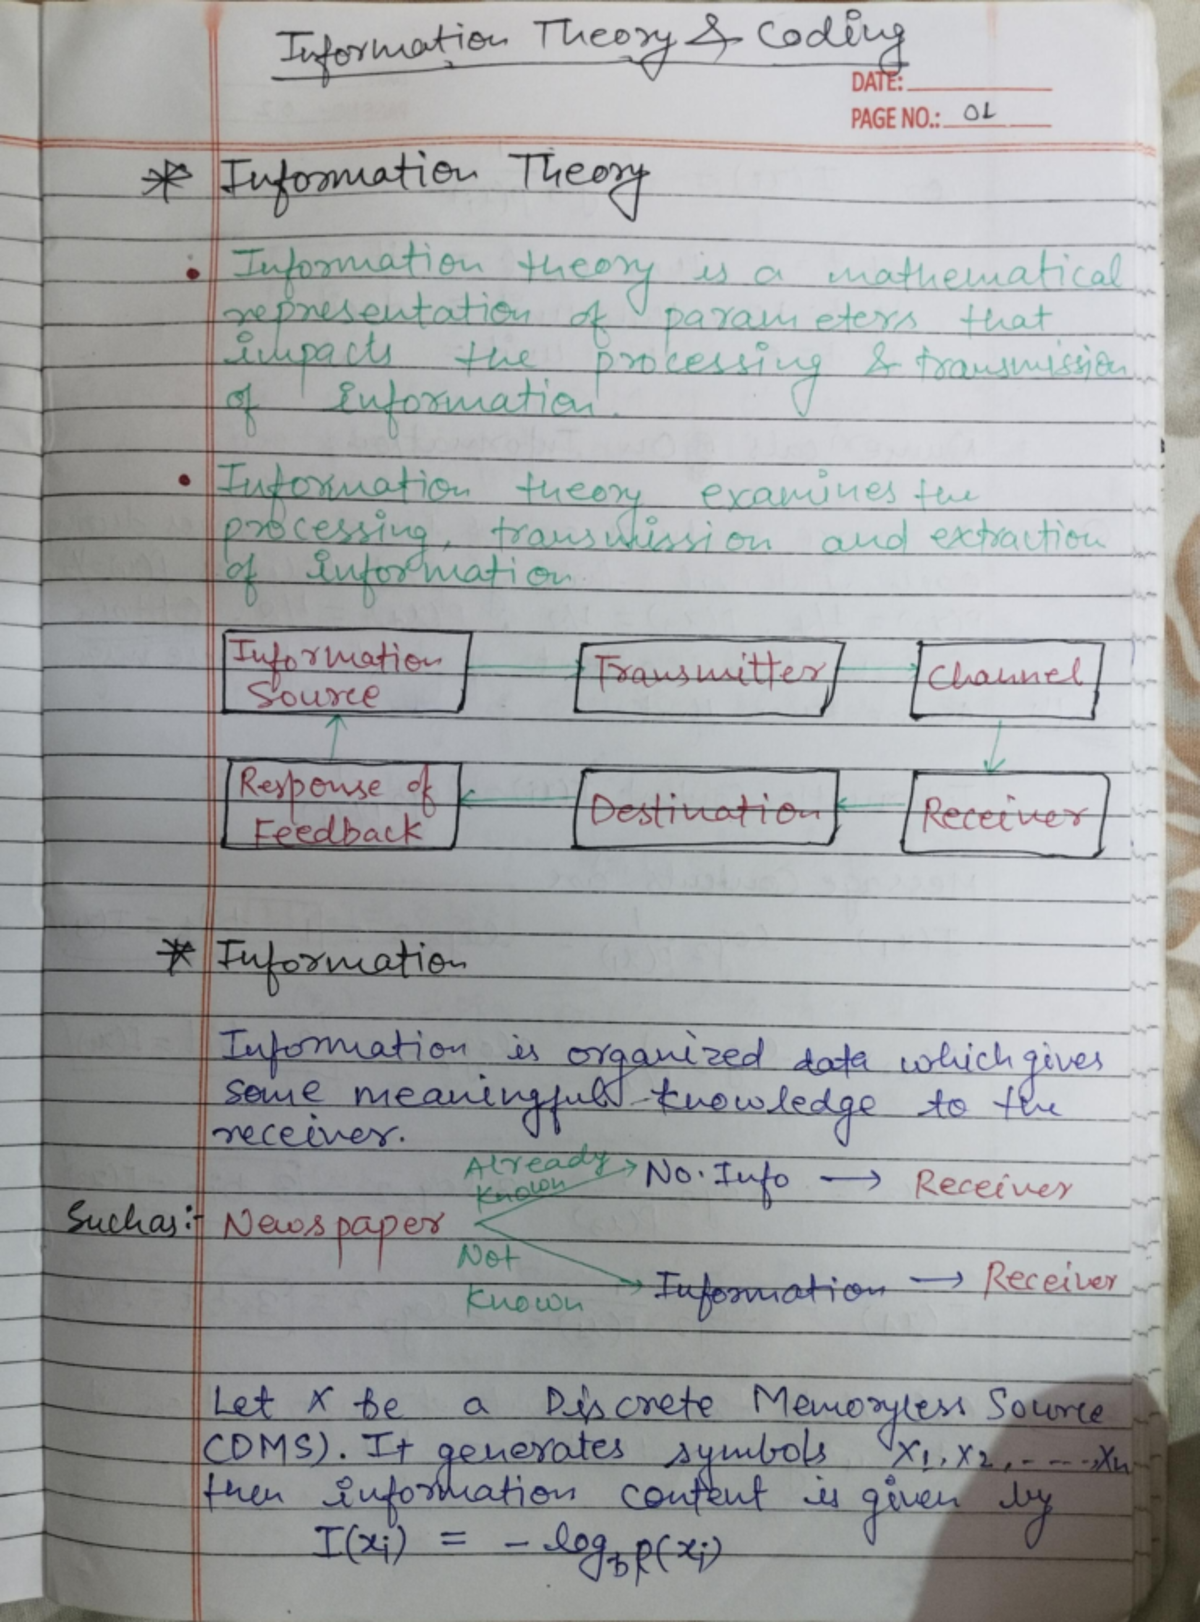 Information Theory & Coding
DATE:
PAGE NO.: 01
* Information Theory
• Information theory is a mathematical
representation of parameters that
impacts the processing & transmission
of information.
• Information theory examines the
processing, transmission and extraction
of information
Information
Source
Transmitter
Channel
Response of
Feedback
Destination
Receiver
* Information
Information is organized data which gives
some meaningful knowledge to the
receiver.
Already
Known
No. Info → Receiver
Such as:- Newspaper
Not
Known
Information → Receiver
Let X be a Discrete Memoryless Source
(DMS). It generates symbols X1, X2, ----, Xn
then information content is given by
I(xi) = - log_b p(xi)